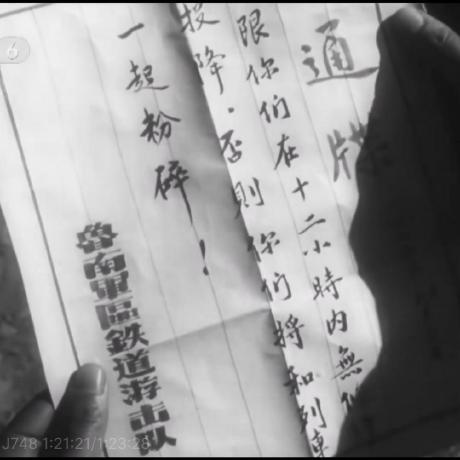 6
通牒
限你们在十二小時内無
投降．否則你们將和列車
一起粉碎！
魯南軍區鉄道游击队
J748 1:21:21/1:23:28